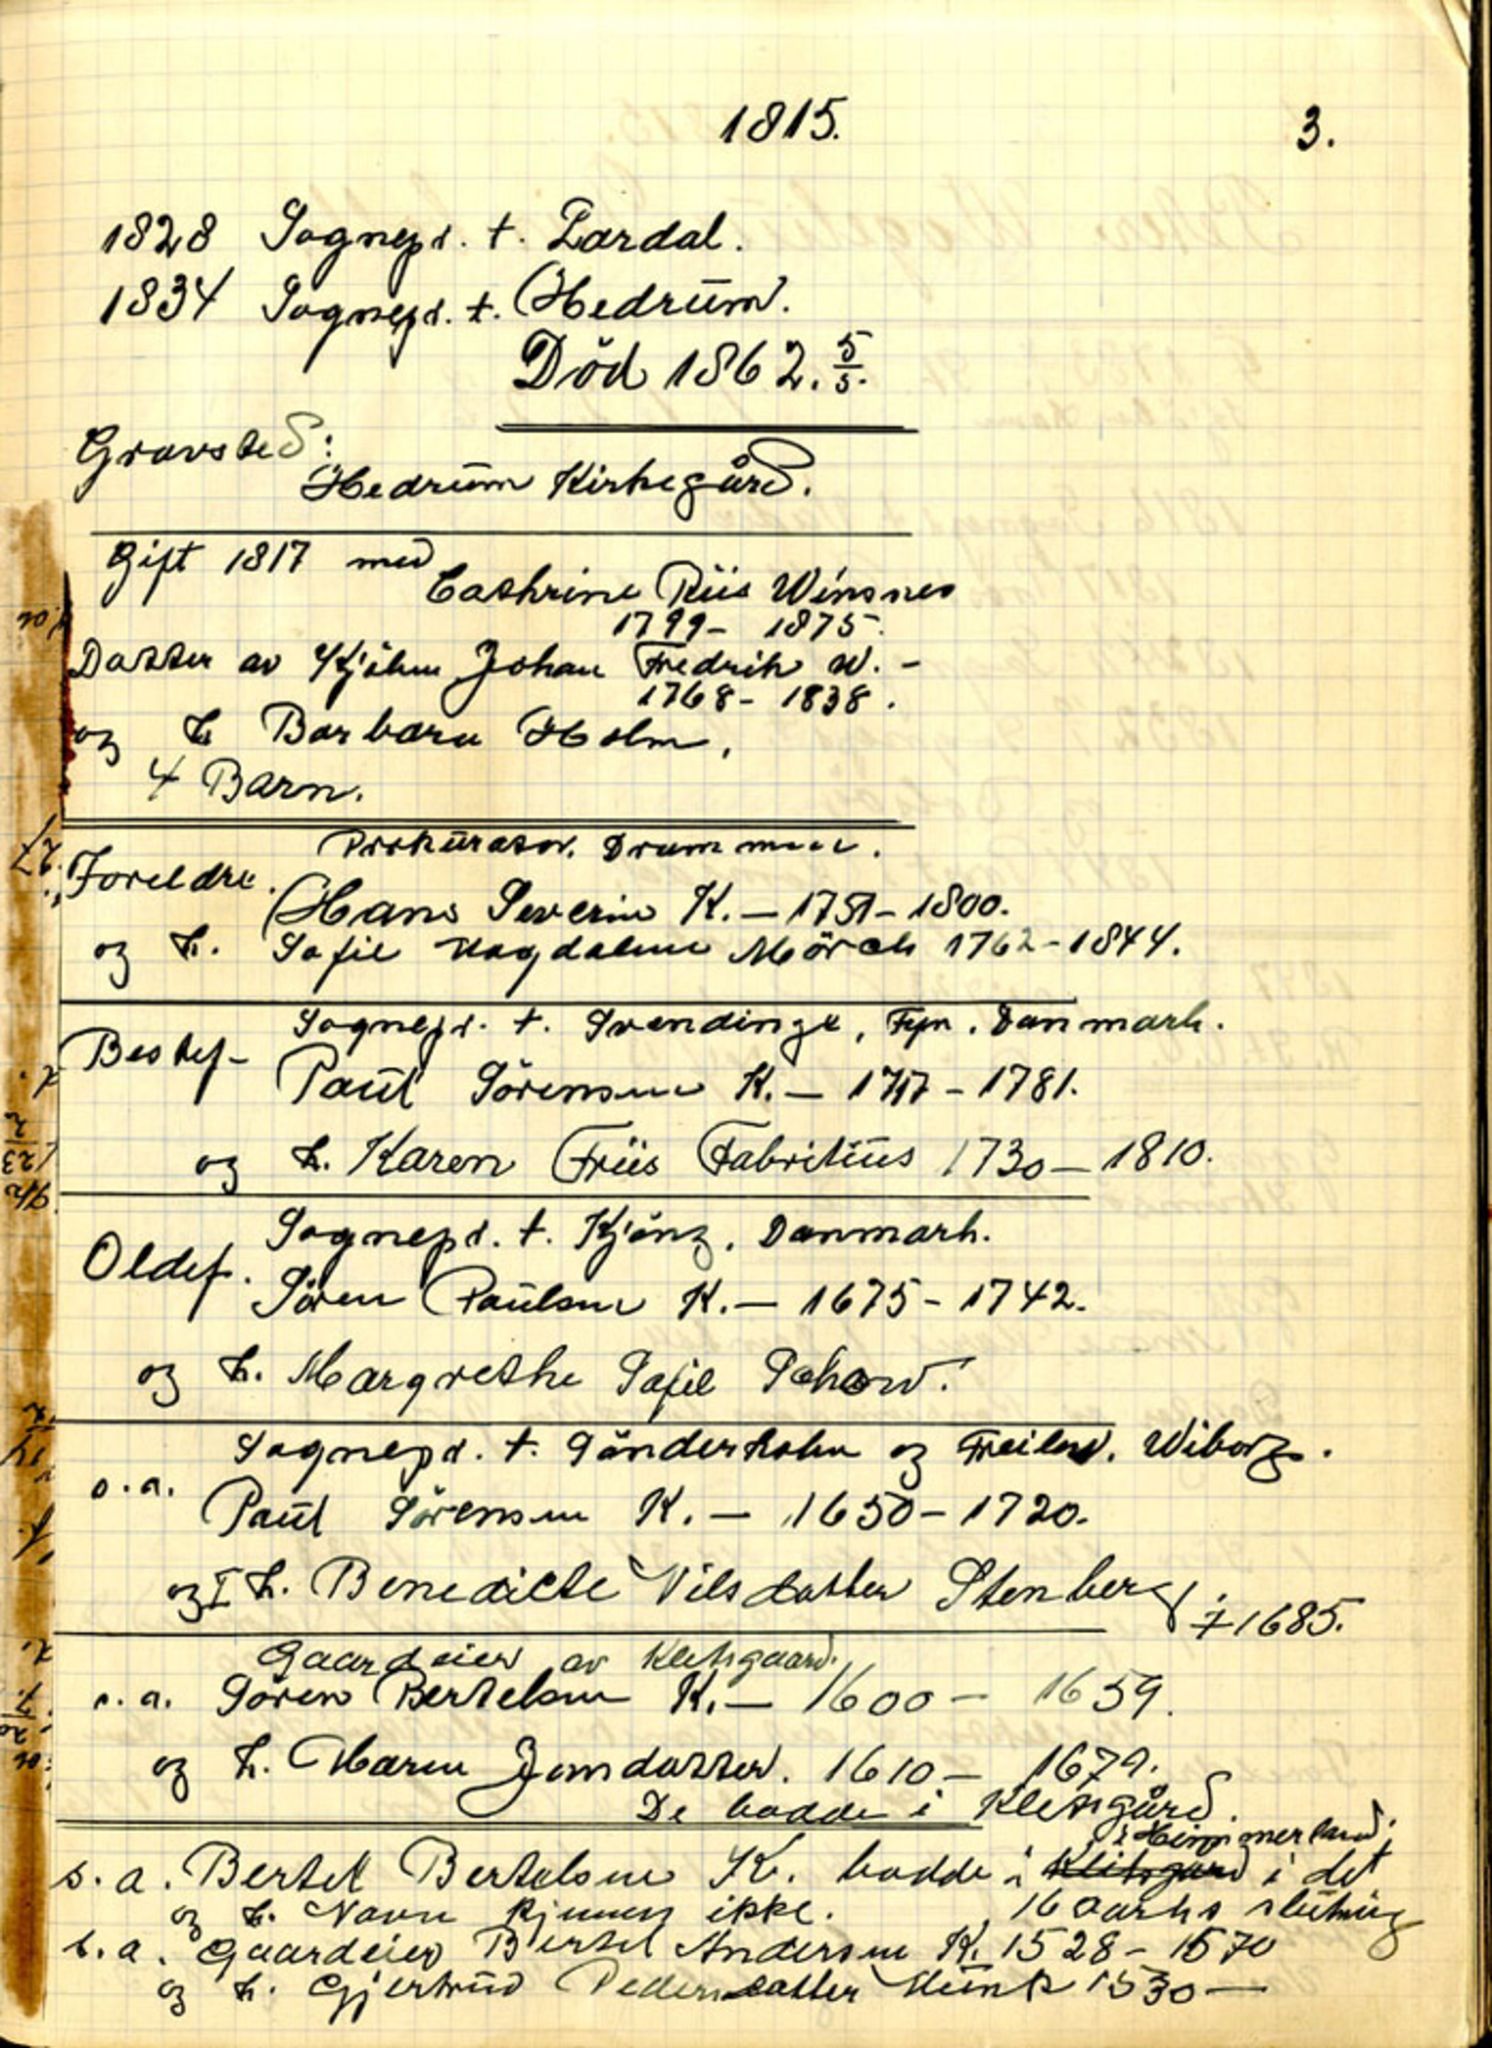 1815.
3.
1828 Sognepr. t. Lardal.
1834 Sognepr. t. Hedrum.
Död 1862. 5/5.
Gravsted:
Hedrum Kirkegård.
Gift 1817 med
Cathrine Riis Winsnes
1799 - 1875.
Datter av Kjøbm Johan Fredrik W. -
1768 - 1838.
og h Barbara Holm.
4 Barn.
Prokurator. Drammen.
Foreldre.
Hans Severin K. - 1751 - 1800.
og h. Sofie Magdalene Mörch 1762 - 1844.
Sognepr. t. Svendinge, Fyn. Danmark.
Bestef-
Paul Sörensen K. - 1717 - 1781.
og h. Karen Friis Fabritius 1730 - 1810.
Sognepr. t. Kjöng. Danmark.
Oldef.
Sören Paulsen K. - 1675 - 1742.
og h. Margrethe Sofie Schow.
Sognepr. t. Sönderholm og Freilev. Wiborg.
s. a.
Paul Sörensen K. - 1650 - 1720.
og I h. Benedicte Nilsdatter Stenberg † 1685.
Gaardeier av Klitgaard.
s. a. Sören Bertelsen K. - 1600 - 1659.
og h. Maren Jensdatter. 1610 - 1679.
De bodde i Klitgård.
i Himmerland.
s. a. Bertel Bertelsen K. bodde i Klitgaard i det
og h. Navn kjennes ikke. 16 aarhs slutning
s. a. Gaardeier Bertel Andersen K. 1528 - 1570
og h. Gjertrud Pedersdatter Munk 1530 -